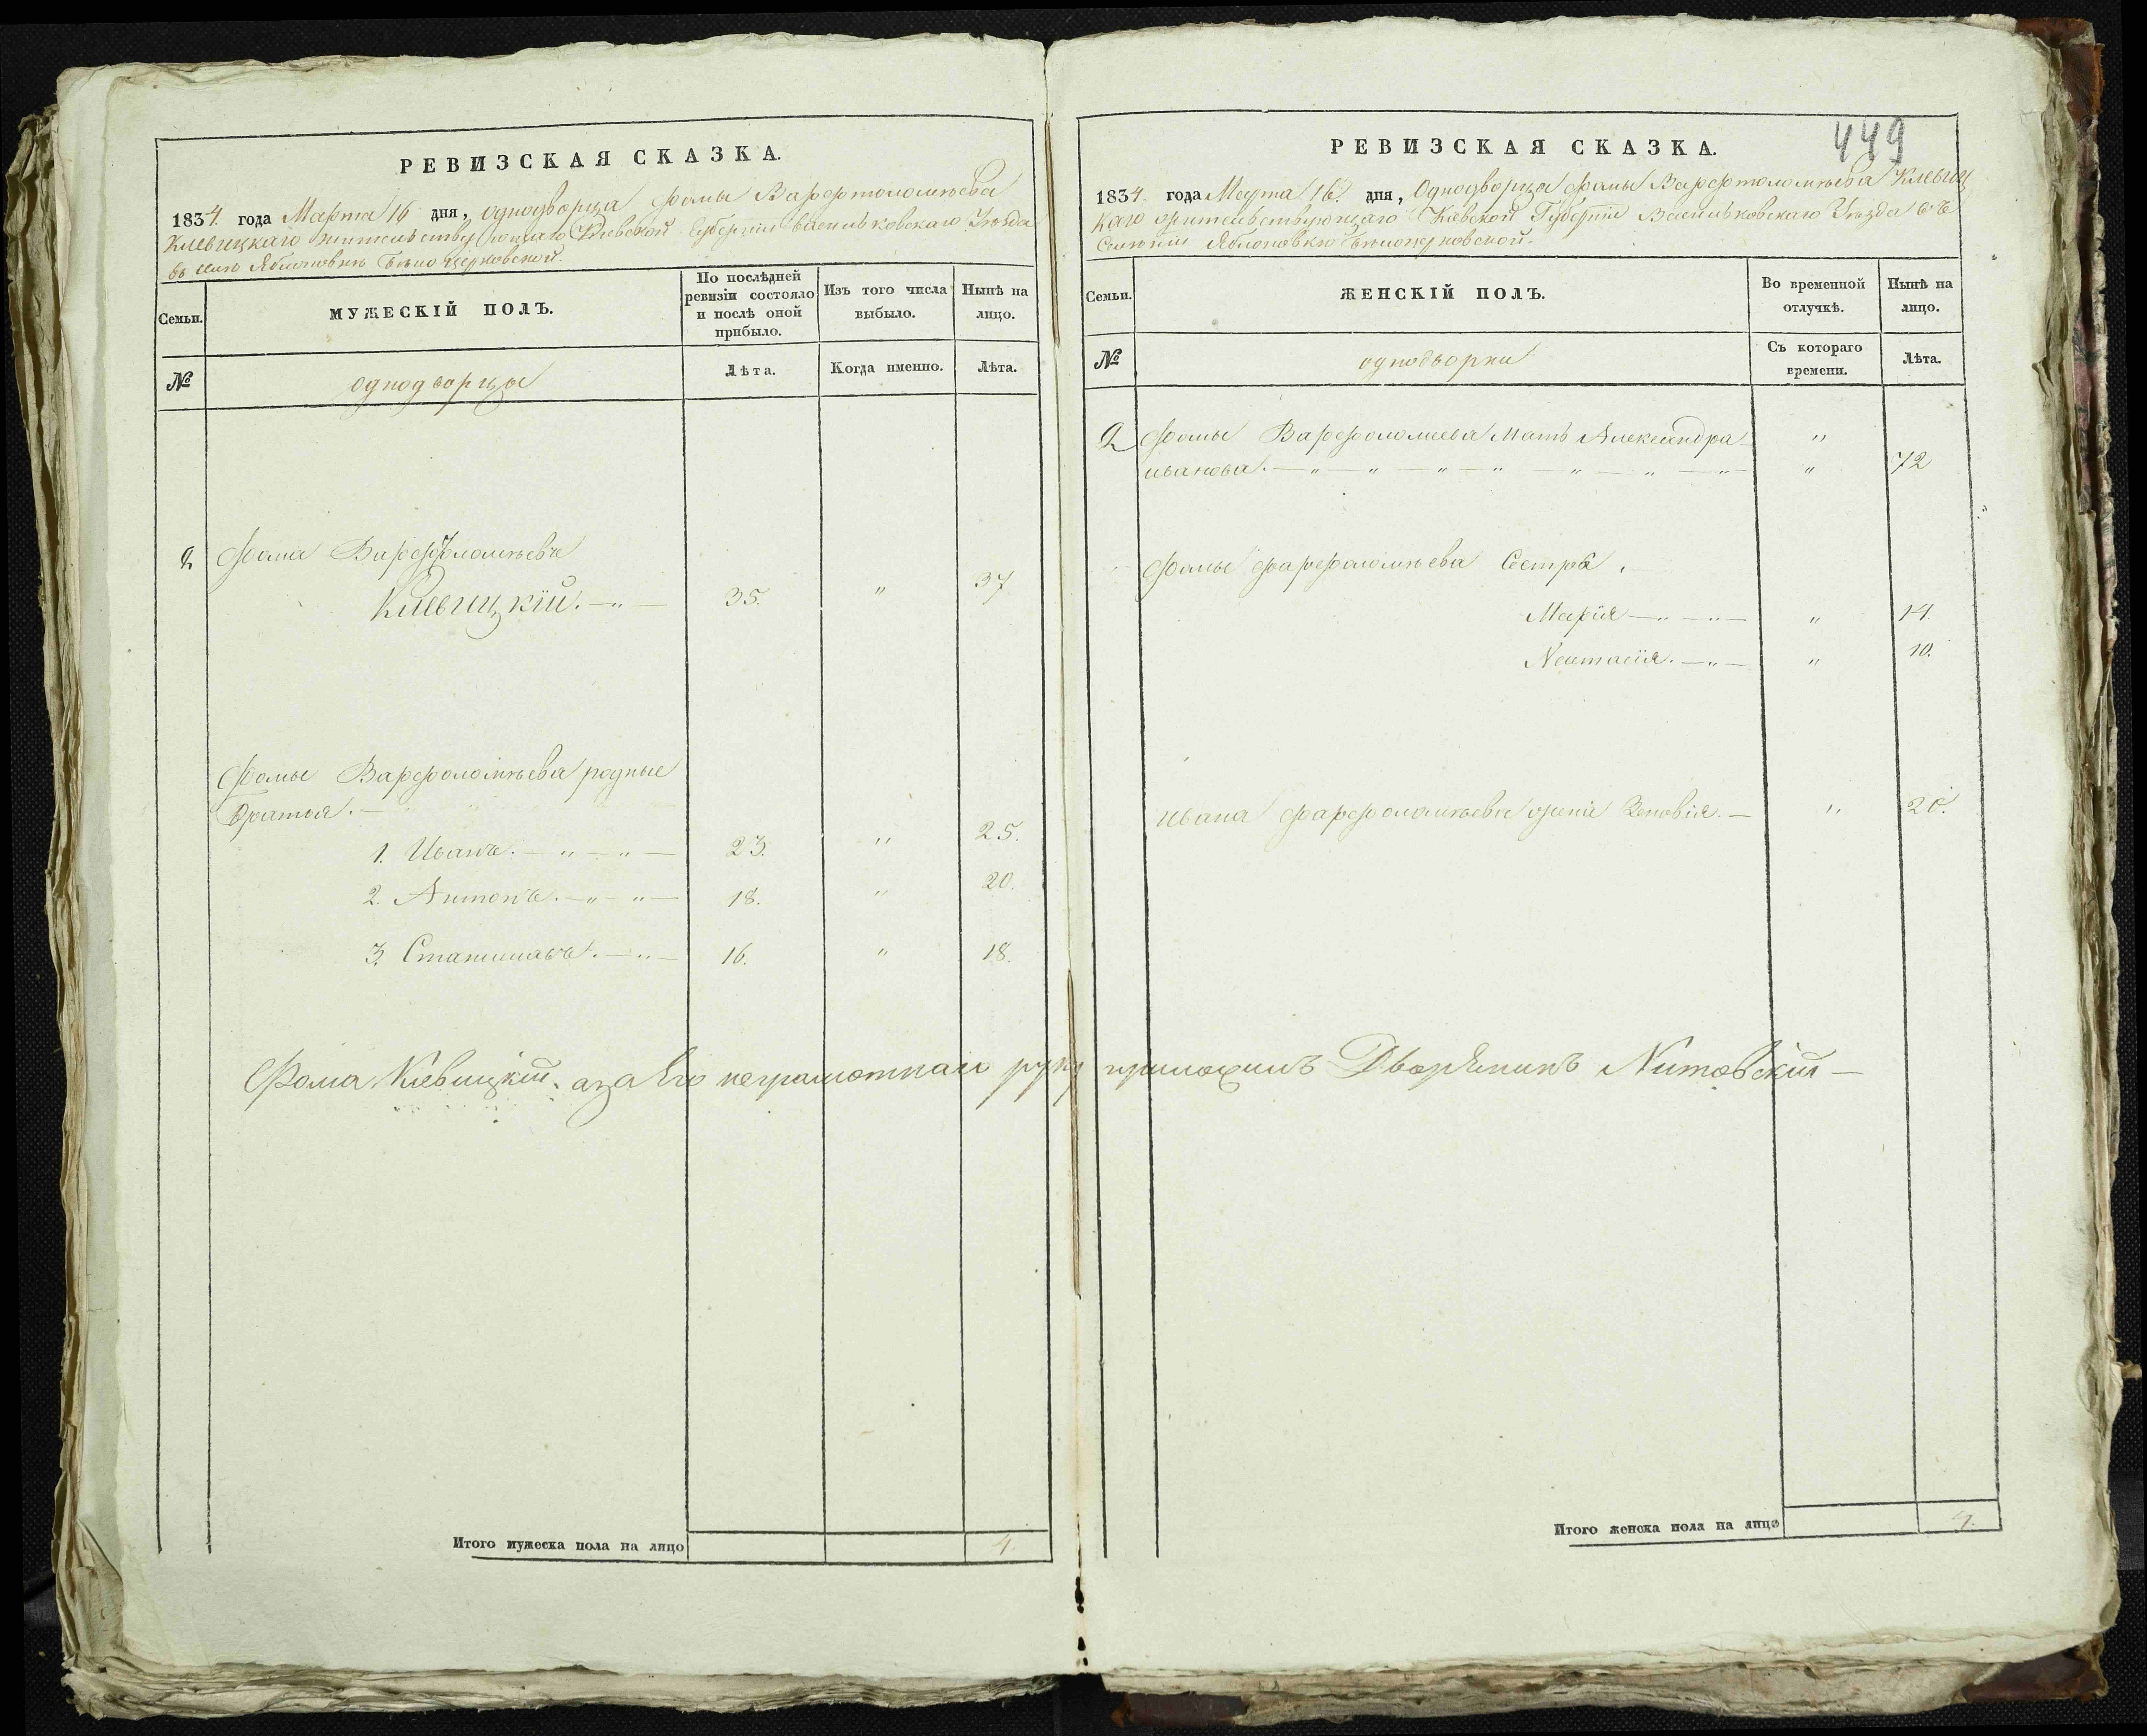 РЕВИЗСКАЯ СКАЗКА.
1834. года Марта 16 дня, однодворца Фомы Варфтоломѣева
Клевицкаго жительствующаго Киевской Губернiи Васильковскаго Уѣзда
въ селѣ Яблоновкѣ Бѣлоцерковской.
Семьи.
МУЖЕСКIЙ ПОЛЪ.
По послѣдней ревизiи состояло и послѣ оной прибыло.
Изъ того числа выбыло.
Нынѣ на лицо.
№
однодворцы
Лѣта.
Когда именно.
Лѣта.
2 Фома Варфоломѣевъ
Клевицкiй. — „ — 35. „ 37
Фомы Варфоломѣева родные
братья. —
1. Иванъ. — „ — „ — 23. „ 25.
2. Антонъ. — „ — „ — 18. „ 20.
3. Станиславъ. — „ — 16. „ 18.
Фома Клевицкий, а за Его неграмотнаго руку приложилъ Дворянинъ —
Итого мужеска пола на лицо 4.
449
РЕВИЗСКАЯ СКАЗКА.
1834. года Марта 16. дня, Однодворца Фомы Варфтоломѣева Клевиц
каго жительствующаго Киевской Губернiи Васильковскаго Уѣзда въ
Селенiи Яблоновкѣ Бѣлоцерковской.
Семьи.
ЖЕНСКIЙ ПОЛЪ.
Во временной отлучкѣ.
Нынѣ на лицо.
№
однодворки
Съ котораго времени.
Лѣта.
2 Фомы Варфоломеева Мать Александра „
иванова. — „ — „ — „ — „ — „ — „ — „ — „ 72
Фомы Фарфоломѣева Сестра .—
Марiя — „ — „ — „ 14.
Настасiя. — „ — „ 10.
Ивана Фарфоломѣева жена Зеновiя. — „ 20.
Итого женска пола на лицо 4.